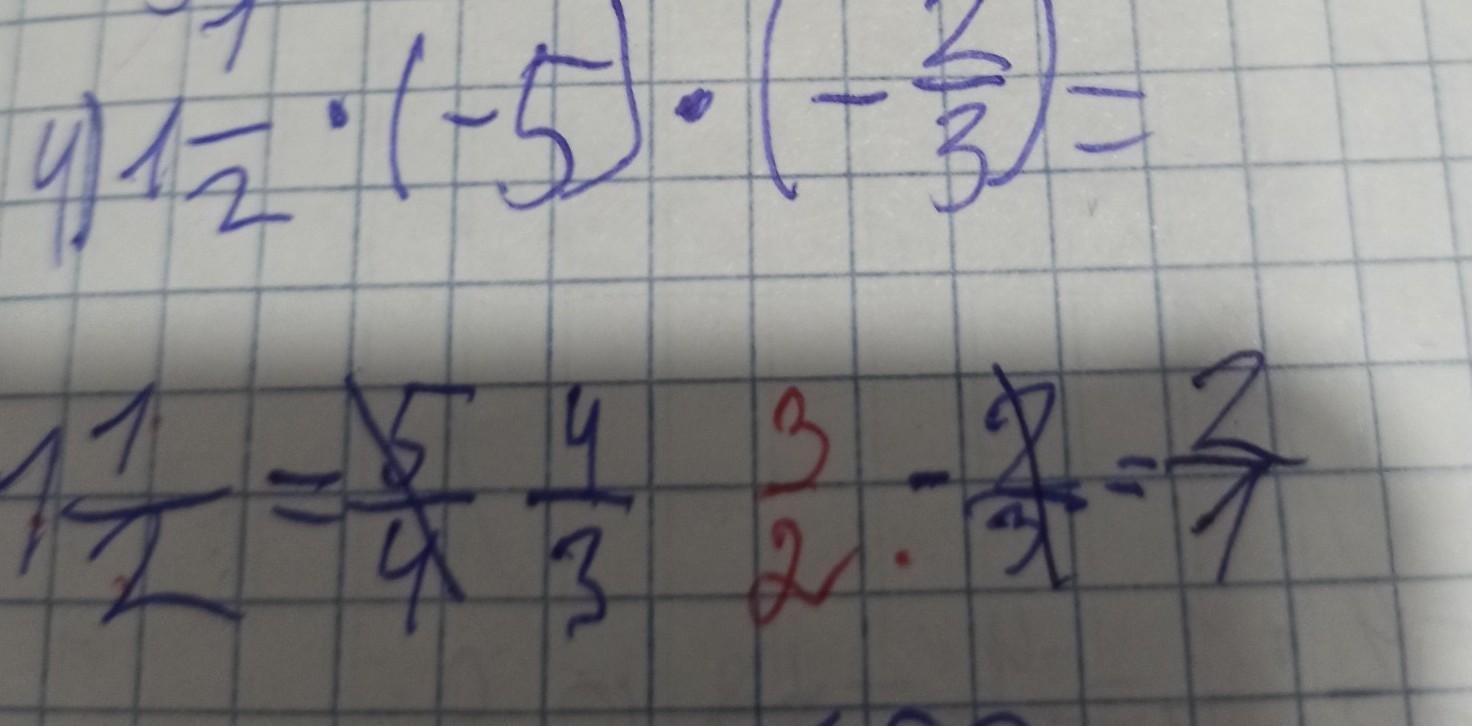 4) 1 1/2 · (-5) · (- 2/3) =
1 1/2 = 5/4 4/3 3/2 · - 2/3 = 2/1